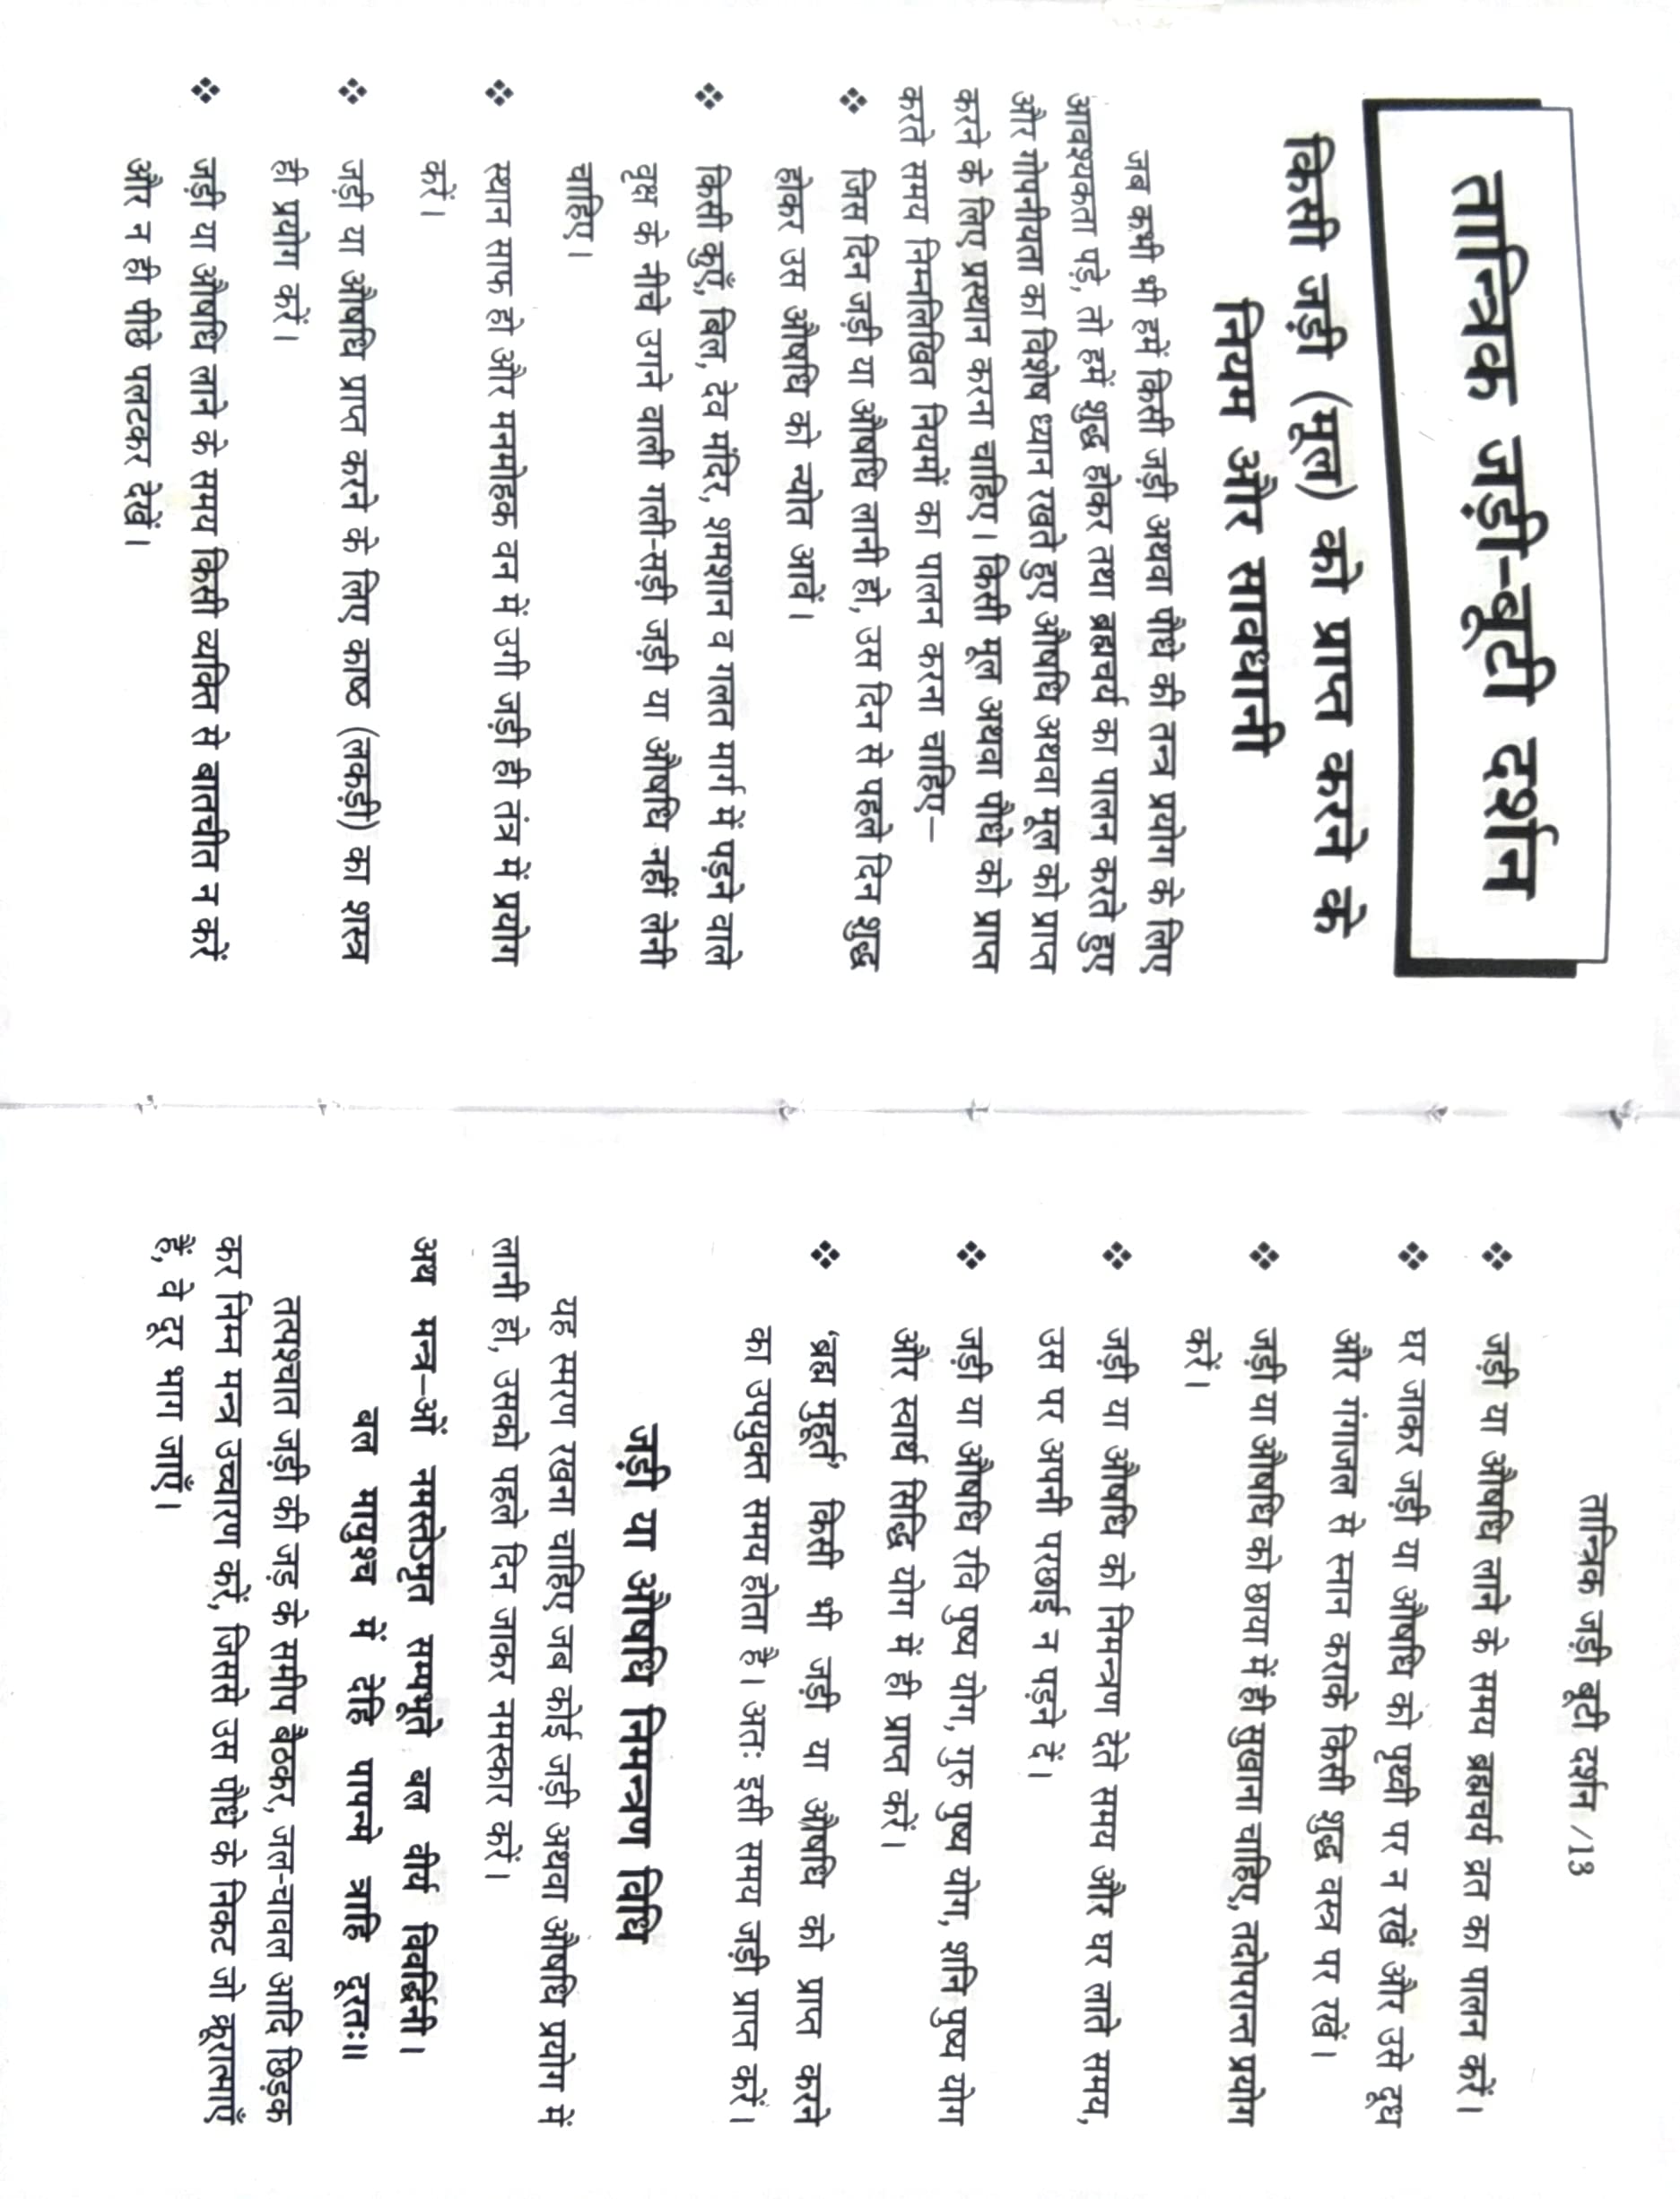 तान्त्रिक जड़ी-बूटी दर्शन
किसी जड़ी (मूल) को प्राप्त करने के
नियम और सावधानी
जब कभी भी हमें किसी जड़ी अथवा पौधे की तन्त्र प्रयोग के लिए
आवश्यकता पड़े, तो हमें शुद्ध होकर तथा ब्रह्मचर्य का पालन करते हुए
और गोपनीयता का विशेष ध्यान रखते हुए औषधि अथवा मूल को प्राप्त
करने के लिए प्रस्थान करना चाहिए। किसी मूल अथवा पौधे को प्राप्त
करते समय निम्नलिखित नियमों का पालन करना चाहिए–
❖ जिस दिन जड़ी या औषधि लानी हो, उस दिन से पहले दिन शुद्ध
होकर उस औषधि को न्योत आवें।
❖ किसी कुएँ, बिल, देव मंदिर, शमशान व गलत मार्ग में पड़ने वाले
वृक्ष के नीचे उगने वाली गली-सड़ी जड़ी या औषधि नहीं लेनी
चाहिए।
❖ स्थान साफ हो और मनमोहक वन में उगी जड़ी ही तंत्र में प्रयोग
करें।
❖ जड़ी या औषधि प्राप्त करने के लिए काष्ठ (लकड़ी) का शस्त्र
ही प्रयोग करें।
❖ जड़ी या औषधि लाने के समय किसी व्यक्ति से बातचीत न करें
और न ही पीछे पलटकर देखें।
तान्त्रिक जड़ी बूटी दर्शन /13
❖ जड़ी या औषधि लाने के समय ब्रह्मचर्य व्रत का पालन करें।
❖ घर जाकर जड़ी या औषधि को पृथ्वी पर न रखें और उसे दूध
और गंगाजल से स्नान कराके किसी शुद्ध वस्त्र पर रखें।
❖ जड़ी या औषधि को छाया में ही सुखाना चाहिए, तदोपरान्त प्रयोग
करें।
❖ जड़ी या औषधि को निमन्त्रण देते समय और घर लाते समय,
उस पर अपनी परछाई न पड़ने दें।
❖ जड़ी या औषधि रवि पुष्य योग, गुरु पुष्य योग, शनि पुष्य योग
और स्वार्थ सिद्धि योग में ही प्राप्त करें।
❖ 'ब्रह्म मुहूर्त' किसी भी जड़ी या औषधि को प्राप्त करने
का उपयुक्त समय होता है। अतः इसी समय जड़ी प्राप्त करें।
जड़ी या औषधि निमन्त्रण विधि
यह स्मरण रखना चाहिए जब कोई जड़ी अथवा औषधि प्रयोग में
लानी हो, उसको पहले दिन जाकर नमस्कार करें।
अथ मन्त्र–ओं नमस्तेऽमृत सम्पभूते बल वीर्य विवर्द्धिनी।
बल मायुश्य में देहि पापन्मे त्राहि दूरतः॥
तत्पश्चात जड़ी की जड़ के समीप बैठकर, जल-चावल आदि छिड़क
कर निम्न मन्त्र उच्चारण करें, जिससे उस पौधे के निकट जो क्रूरात्माएँ
हैं, वे दूर भाग जाएँ।